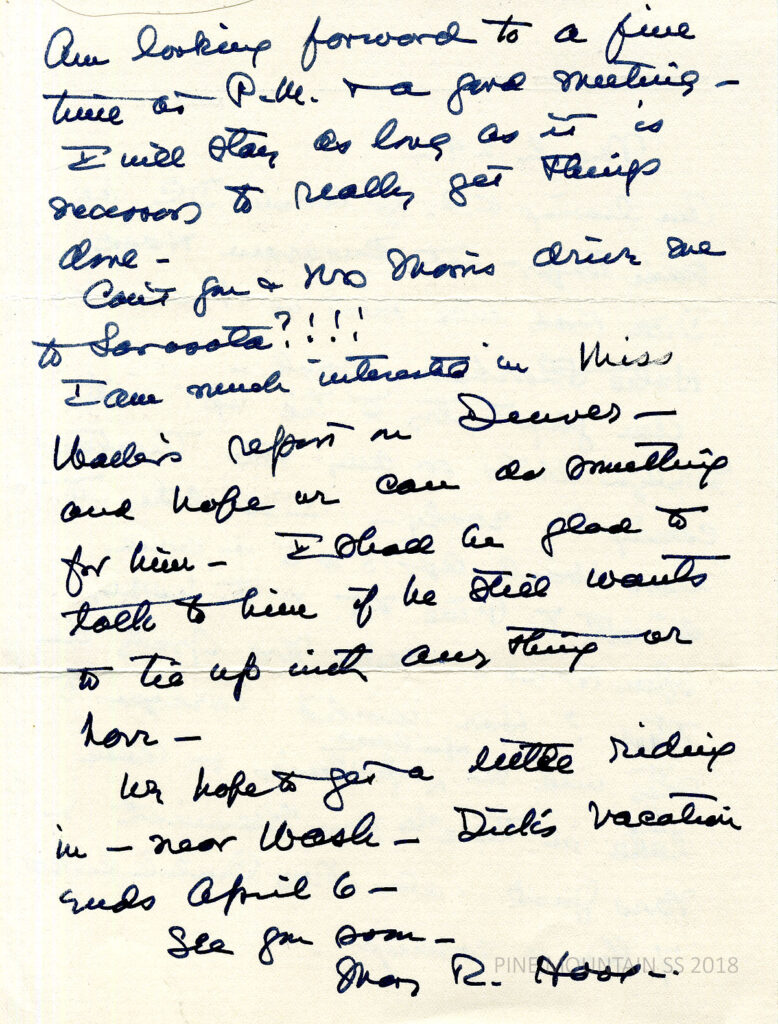 Am looking forward to a fine
time at P.M. & a good meeting -
I will stay as long as it is
necessary to really get things
done -
Can't you & Mrs Morris drive me
to Sarasota?!!!!
I am much interested in Miss
report on Denver -
and hope we can do something
for him - I shall be glad to
talk to him if he still wants
to tie up with any thing we
have -
We hope to get a little riding
in - near Wash - Dick's vacation
ends April 6 -
See you soon -
Mary R.
PINE MOUNTAIN SS 2018